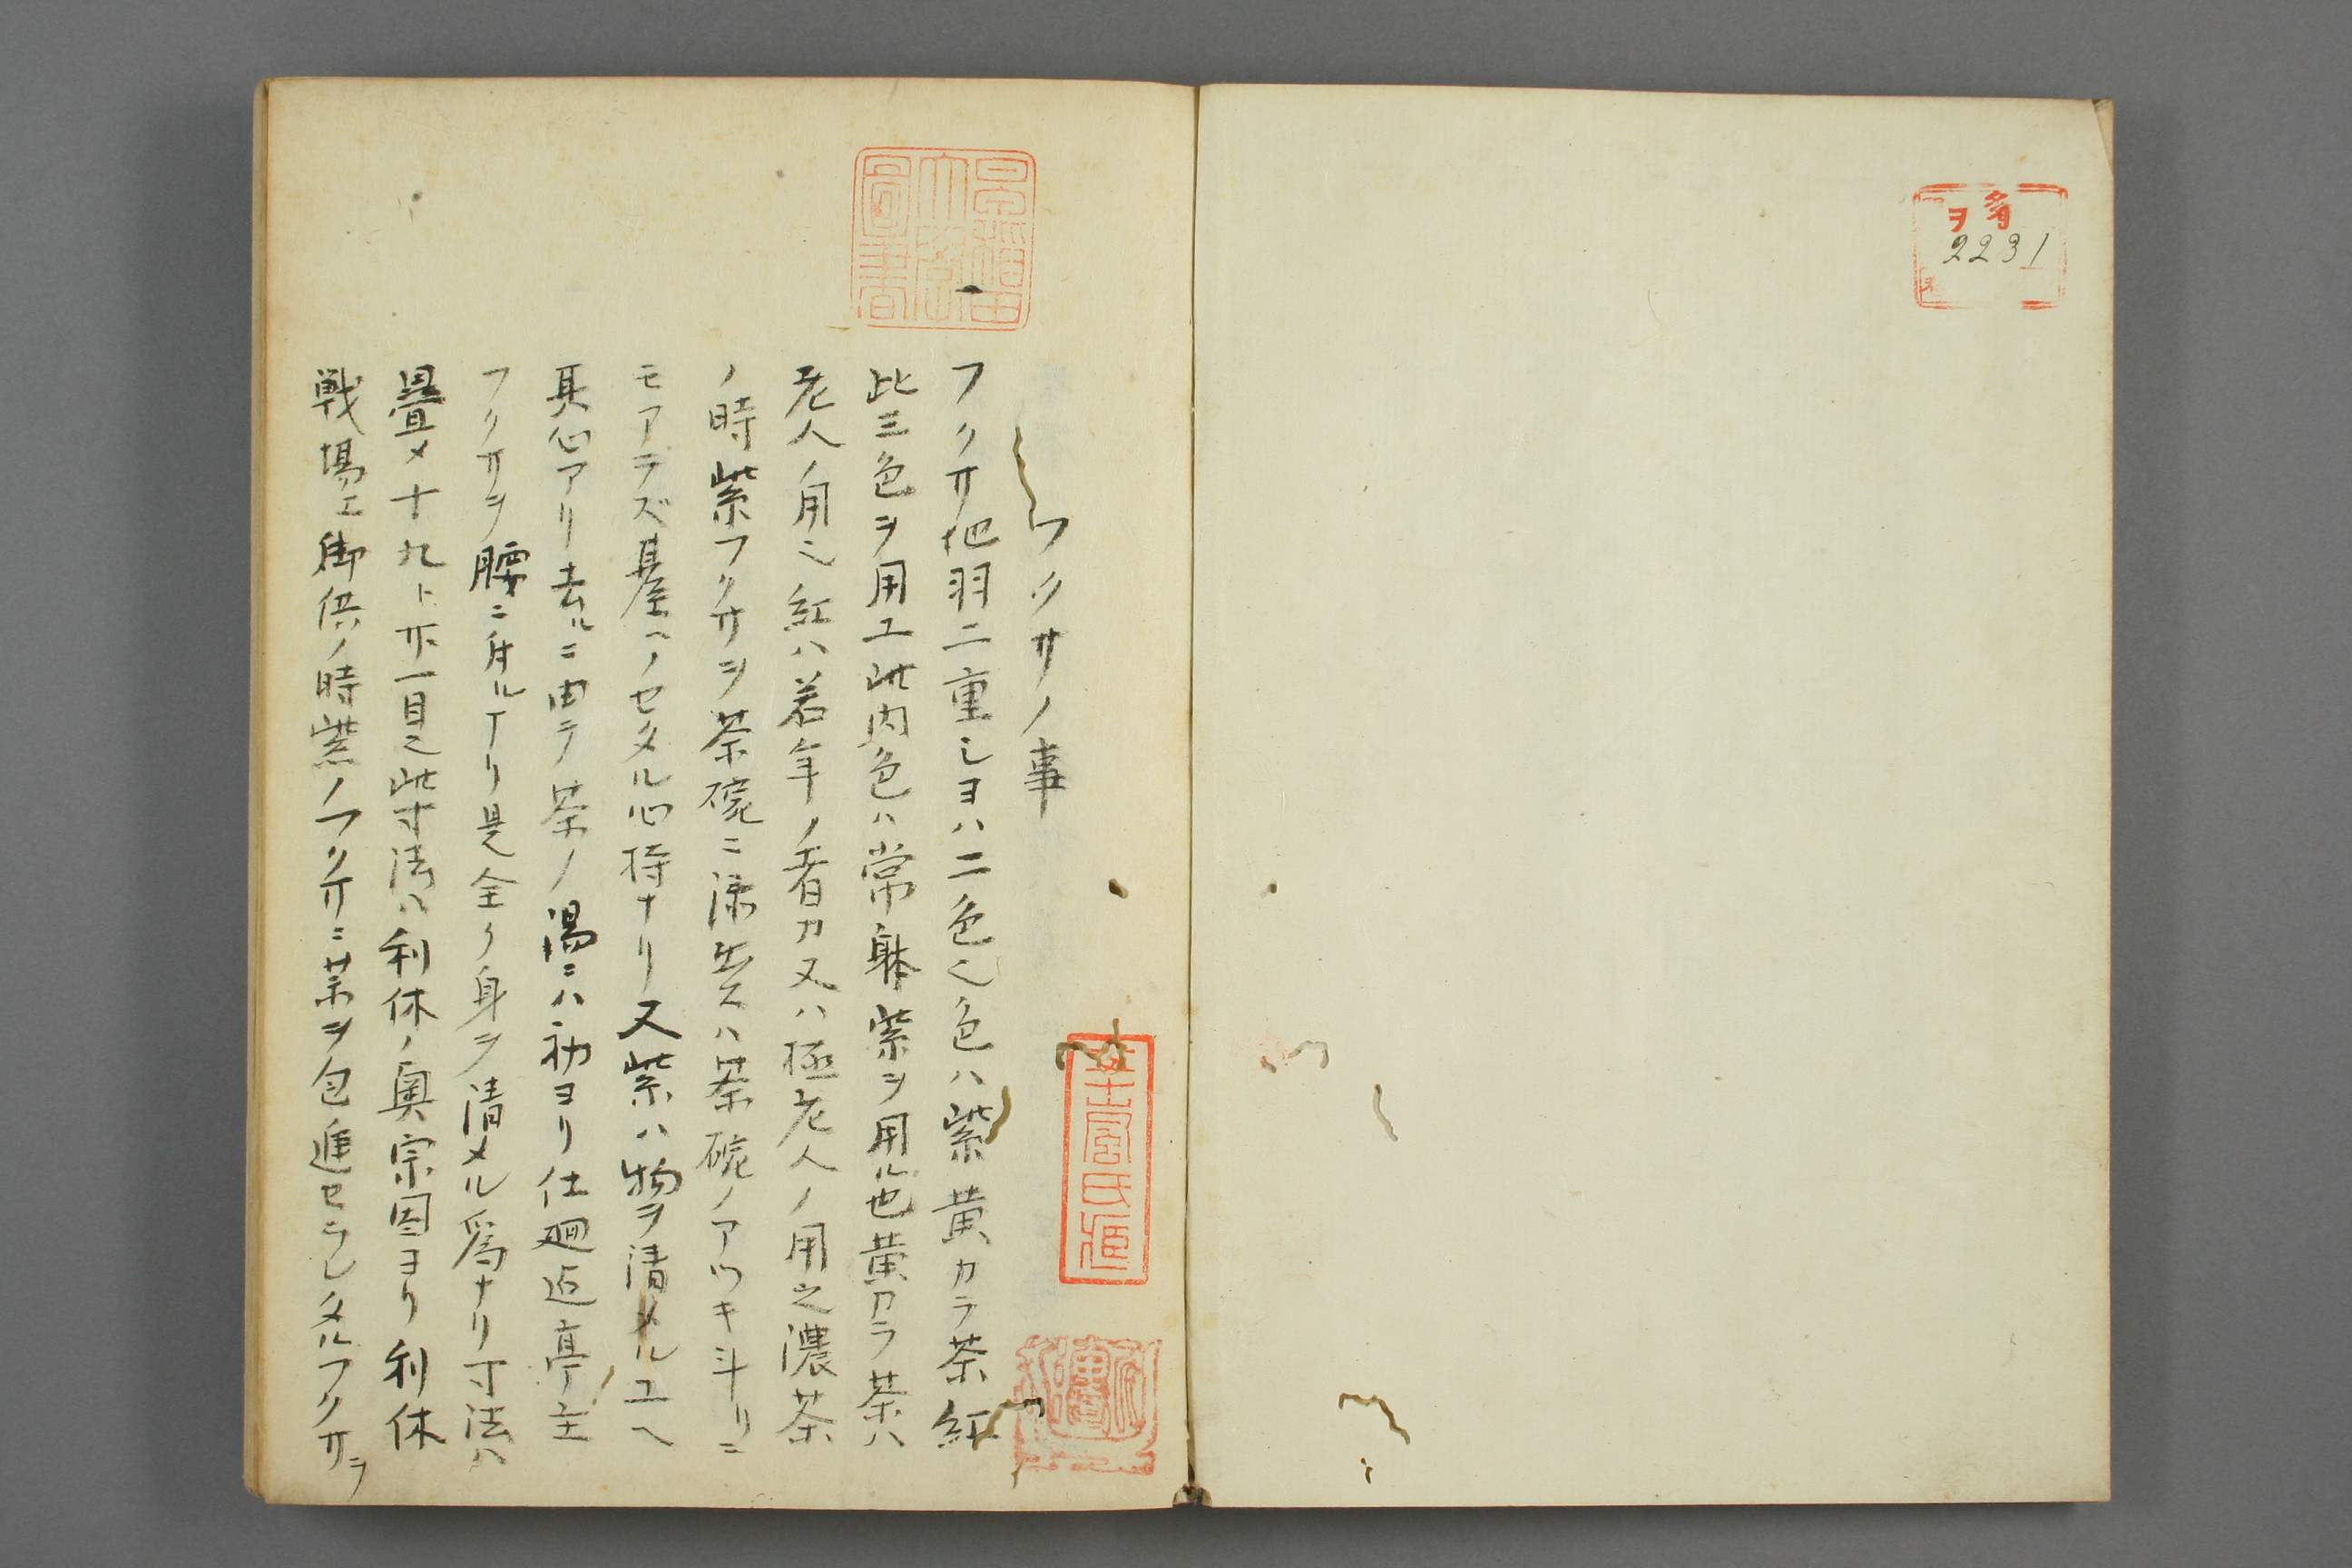 ヲ 有
2231
一 フクサノ事
フクサ他羽二重シヨハ二色也色ハ紫黄カラ茶紅
此三色ヲ用ユ此内色ハ常躰紫ヲ用ル也黄カラ茶ハ
老人ノ用也紅ハ若年ノ者カ又ハ極老人ノ用之濃茶
ノ時紫フクサヲ茶碗ニ添出スハ茶碗ノアツキ斗リニ
モアラズ其座ヘノセタル心持ナリ又紫ハ物ヲ清メルユヘ
其心アリ去ルニ由テ茶ノ湯ニハ初ヨリ仕廻迄亭主
フクサヲ腰ニ付ルナリ是全ク身ヲ清メル為ナリ寸法ハ
畳メ十九ト亦一目也此寸法ハ利休ノ奥宗恩ヨリ利休
戦場エ御供ノ時紫ノフクサニ茶ヲ包進セラレタルフクサヲ